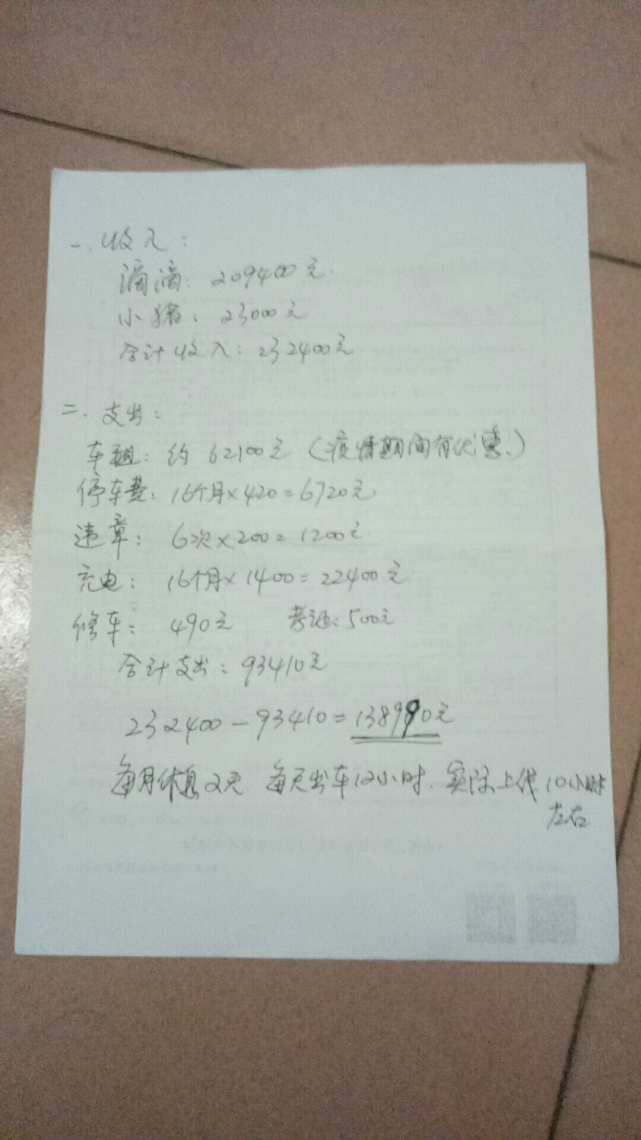 一. 收入:
滴滴: 209400元.
小猪: 23000元
合计收入: 232400元
二. 支出:
车租: 约 62100元 (疫情期间有优惠.)
停车费: 16个月×420=6720元.
违章: 6次×200=1200元.
充电: 16个月×1400=22400元
修车: 490元 考证: 500元
合计支出: 93410元
232400-93410=138990元
每月休息2天 每天出车12小时. 实际上线10小时
左右